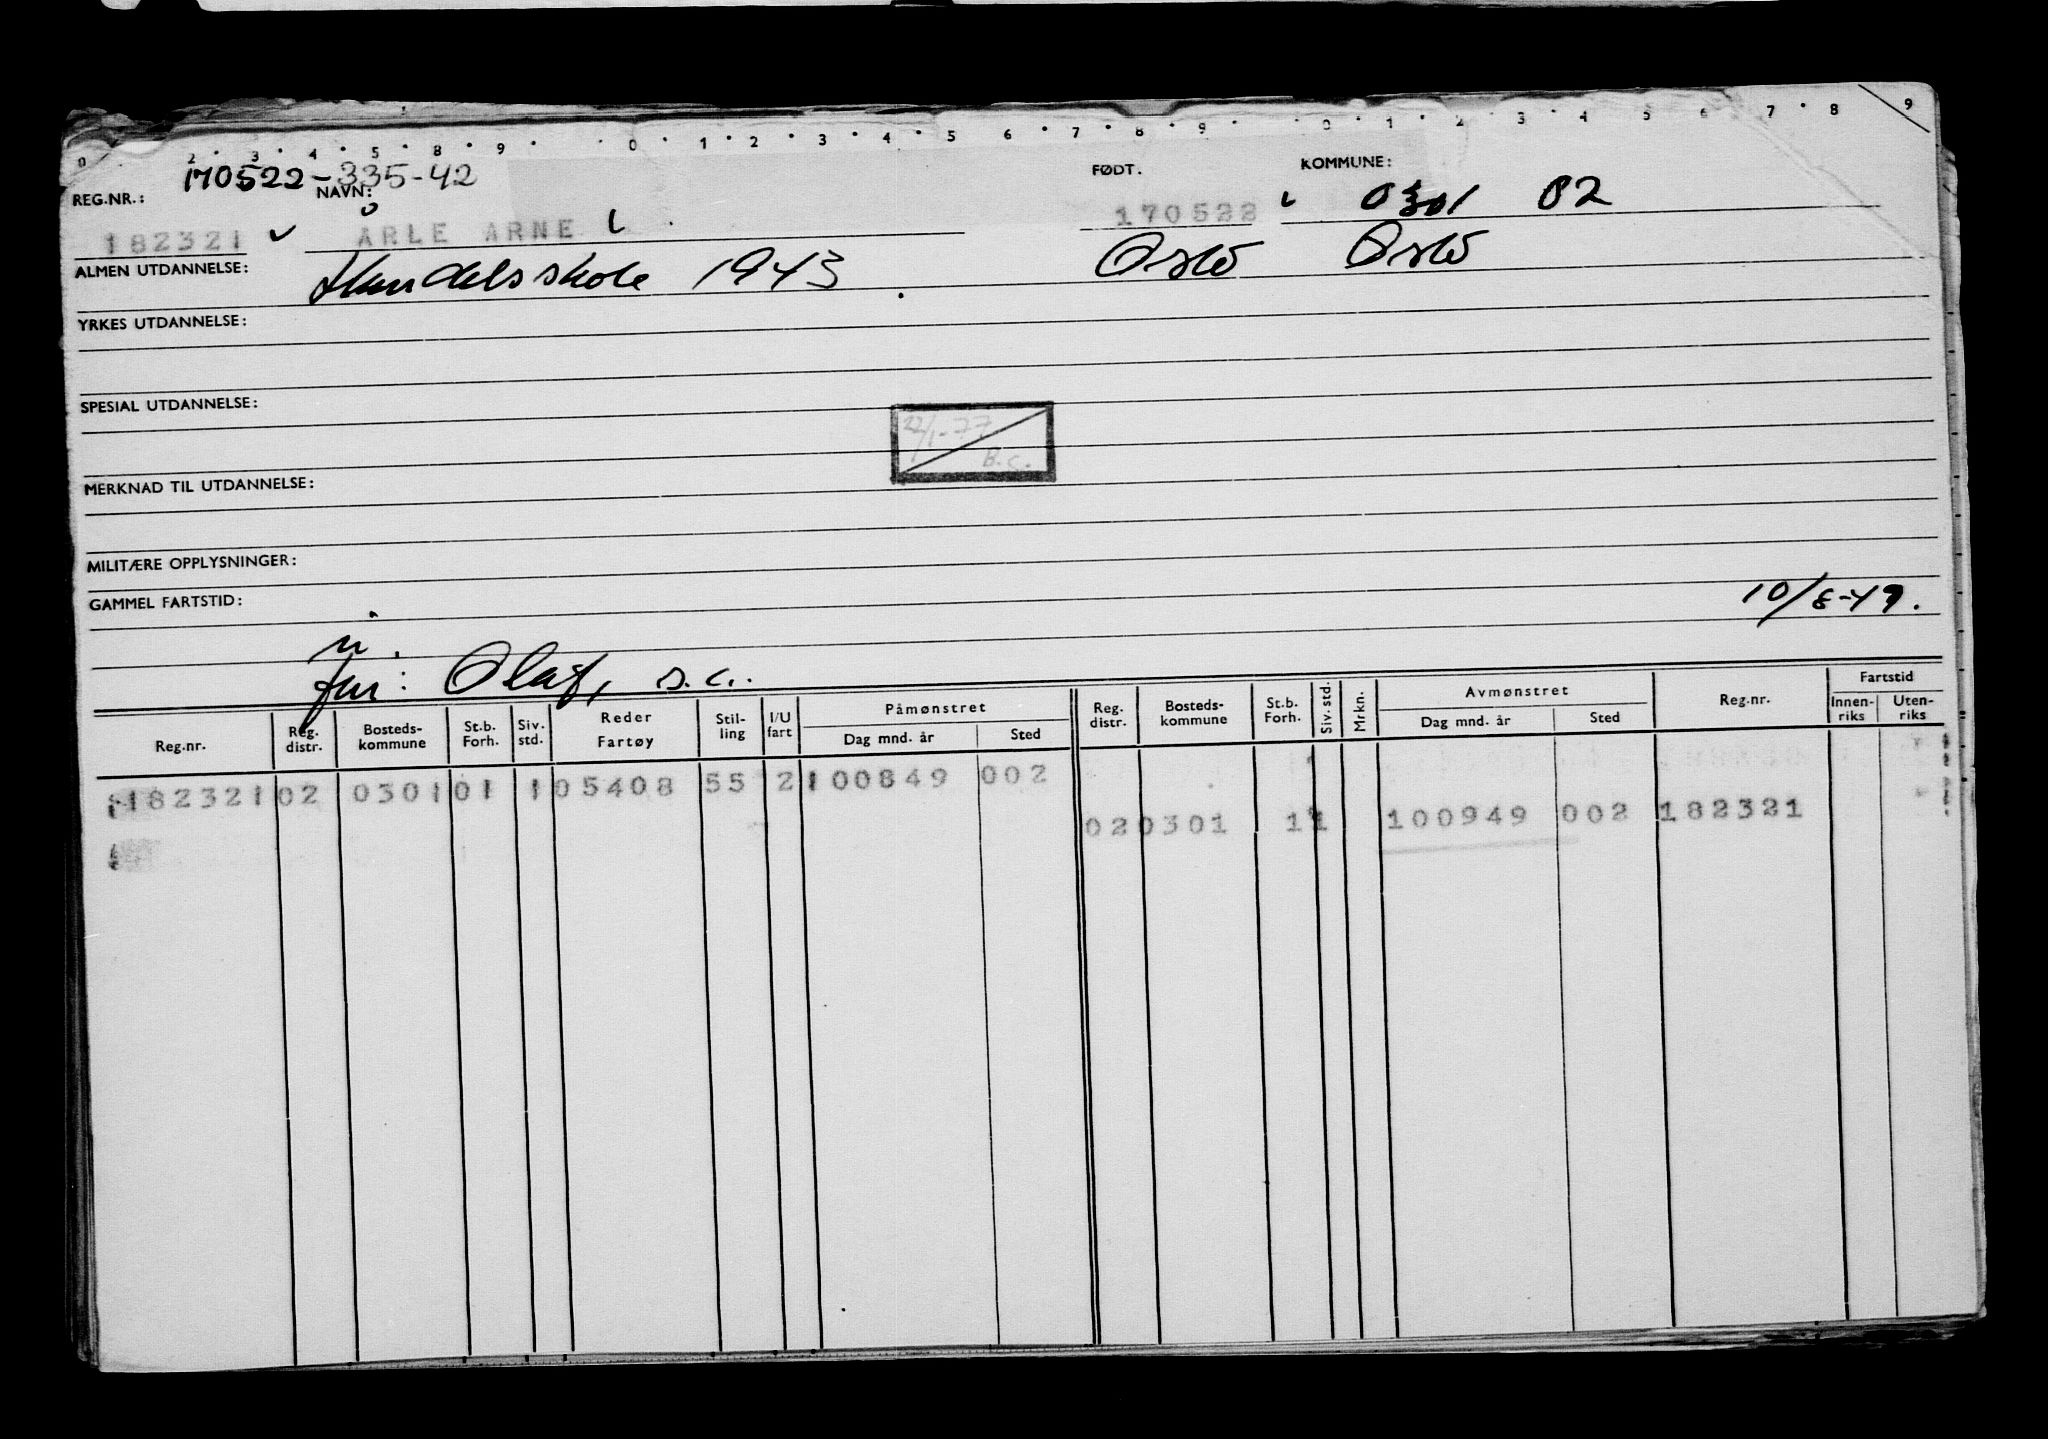 0 2 · 3 · 4 · 5 · 8 · 9 · · 0 · 1 · 2 · 3 · 4 · 5 6 · 7 · 8 · 9 · 0 · 1 · 2 · 3 · 4 5 6 7 · 8 9
170522-335-42
REG.NR.: NAVN: FØDT. KOMMUNE:
182321 ÅRLE ARNE 170522 0301 02
ALMEN UTDANNELSE: Handelsskole 1943 Oslo Oslo
YRKES UTDANNELSE:
SPESIAL UTDANNELSE:
22/1-77
B.C.
MERKNAD TIL UTDANNELSE:
MILITÆRE OPPLYSNINGER:
GAMMEL FARTSTID: 10/8-49.
far: Olaf, s.c.
Reg.nr. Reg. distr. Bosteds-kommune St.b. Forh. Siv. std. Reder Fartøy Stil-ling I/U fart Påmønstret Dag mnd. år Sted Reg. distr. Bosteds-kommune St.b. Forh. Siv. std. Mrkn. Avmønstret Dag mnd. år Sted Reg.nr. Fartstid Innen-riks Uten-riks
182321 02 0301 01 1 05408 55 2 100849 002
02 0301 1 1 100949 002 182321